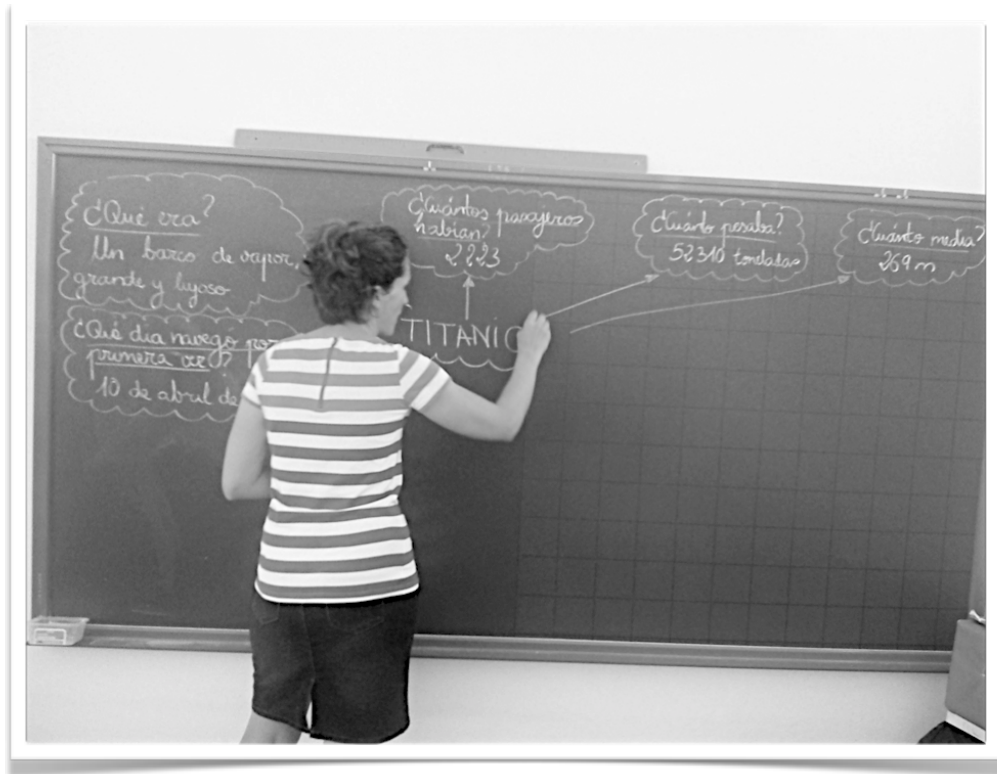 ¿Qué era?
Un barco de vapor,
grande y lujoso
¿Qué día navegó por
primera vez?
10 de abril de
¿Cuántos pasajeros
habían?
2223
TITANIC
¿Cuánto pesaba?
52310 toneladas
¿Cuánto medía?
269 m